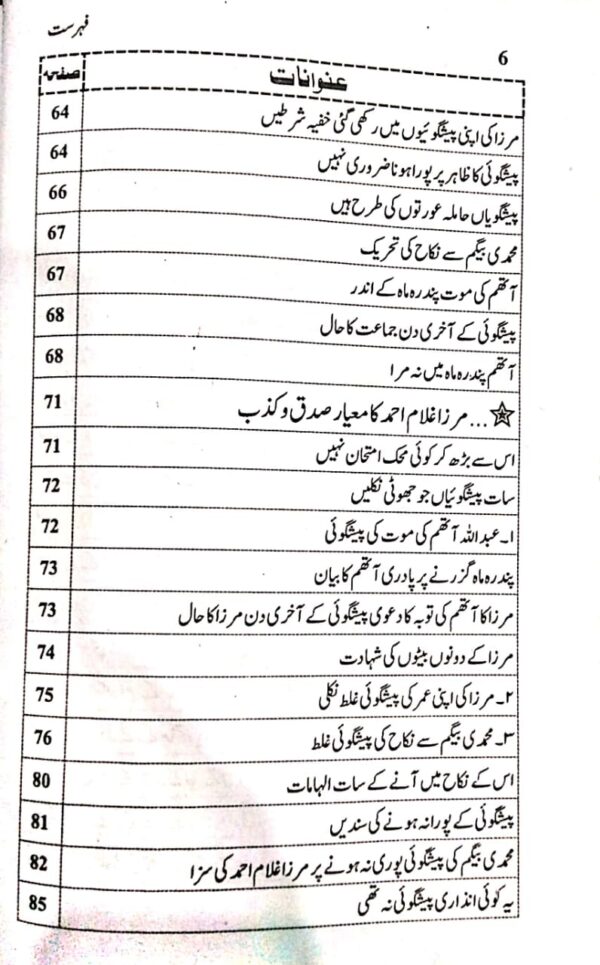 فہرست
6
عنوانات صفحہ
مرزا کی اپنی پیشگوئیوں میں رکھی گئی خفیہ شرطیں 64
پیشگوئی کا ظاہر پر پورا ہونا ضروری نہیں 64
پیشگویاں حاملہ عورتوں کی طرح ہیں 66
محمدی بیگم سے نکاح کی تحریک 67
آتھم کی موت پندرہ ماہ کے اندر 67
پیشگوئی کے آخری دن جماعت کا حال 68
آتھم پندرہ ماہ میں نہ مرا 68
... مرزا غلام احمد کا معیار صدق و کذب 71
اس سے بڑھ کر کوئی محک امتحان نہیں 71
سات پیشگوئیاں جو جھوٹی نکلیں 72
۱۔ عبداللہ آتھم کی موت کی پیشگوئی 72
پندرہ ماہ گزرنے پر پادری آتھم کا بیان 73
مرزا کا آتھم کی توبہ کا دعوی پیشگوئی کے آخری دن مرزا کا حال 73
مرزا کے دونوں بیٹوں کی شہادت 74
۲۔ مرزا کی اپنی عمر کی پیشگوئی غلط نکلی 75
۳۔ محمدی بیگم سے نکاح کی پیشگوئی غلط 76
اس کے نکاح میں آنے کے سات الہامات 80
پیشگوئی کے پورا نہ ہونے کی سندیں 81
محمدی بیگم کی پیشگوئی پوری نہ ہونے پر مرزا غلام احمد کی سزا 82
یہ کوئی انذاری پیشگوئی نہ تھی 85